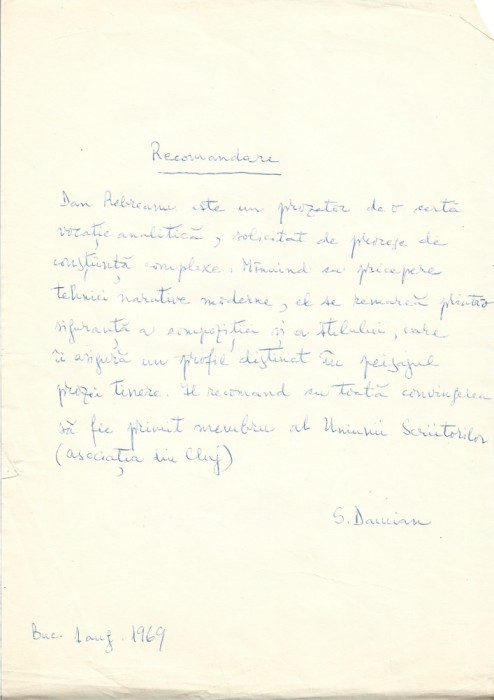 Recomandare
Dan Rebreanu este un prozator de o certă
vocație analitică, solicitat de procese de
conștiință complexe. Mînuind cu pricepere
tehnici narative moderne, el se remarcă printr-o
siguranță a compoziției și a stilului, care
îi asigură un profil distinct în peisajul
prozei tinere. Îl recomand cu toată convingerea
să fie primit membru al Uniunii Scriitorilor
(asociația din Cluj)
S. Damian
Buc. 1 aug. 1969